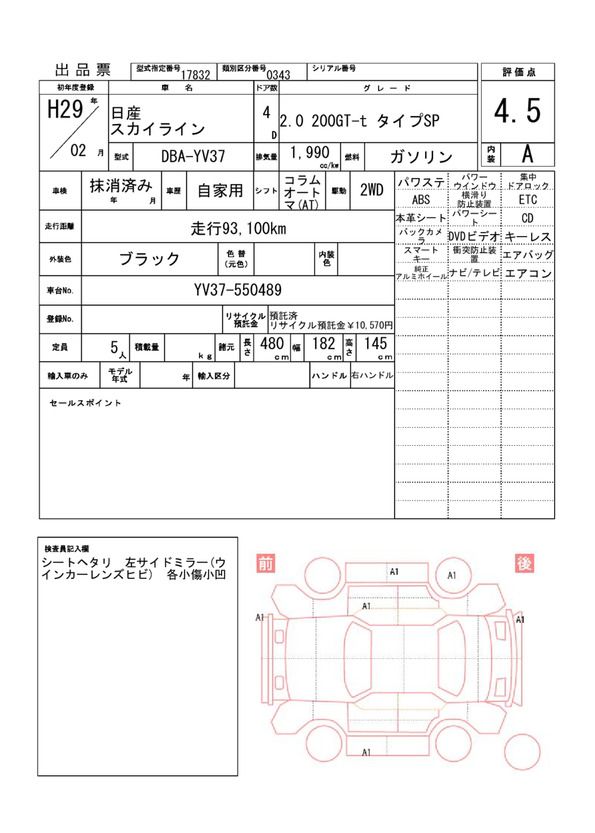 出品票 型式指定番号 17832 類別区分番号 0343 シリアル番号
評価点
初年度登録 車名 ドア数 グレード
H29年 02月
日産
スカイライン
4D
2.0 200GT-t タイプSP
4.5
型式 DBA-YV37 排気量 1,990 cc/kw 燃料 ガソリン
内装 A
車検 抹消済み 年 月 車歴 自家用 シフト コラムオートマ(AT) 駆動 2WD
走行距離 走行93,100km
外装色 ブラック 色替(元色) 内装色
車台No. YV37-550489
登録No. リサイクル預託金 預託済
リサイクル預託金¥10,570円
定員 5人 積載量 kg 諸元 長さ 480cm 幅 182cm 高さ 145cm
輸入車のみ モデル年式 年 輸入区分 ハンドル 右ハンドル
パワステ パワーウインドウ 集中ドアロック
ABS 横滑り防止装置 ETC
本革シート パワーシート CD
バックカメラ DVDビデオ キーレス
スマートキー 衝突防止装置 エアバッグ
純正アルミホイール ナビ/テレビ エアコン
セールスポイント
検査員記入欄
シートヘタリ 左サイドミラー(ウ
インカーレンズヒビ) 各小傷小凹
前 後
A1 A1
A1
A1 A1
A1